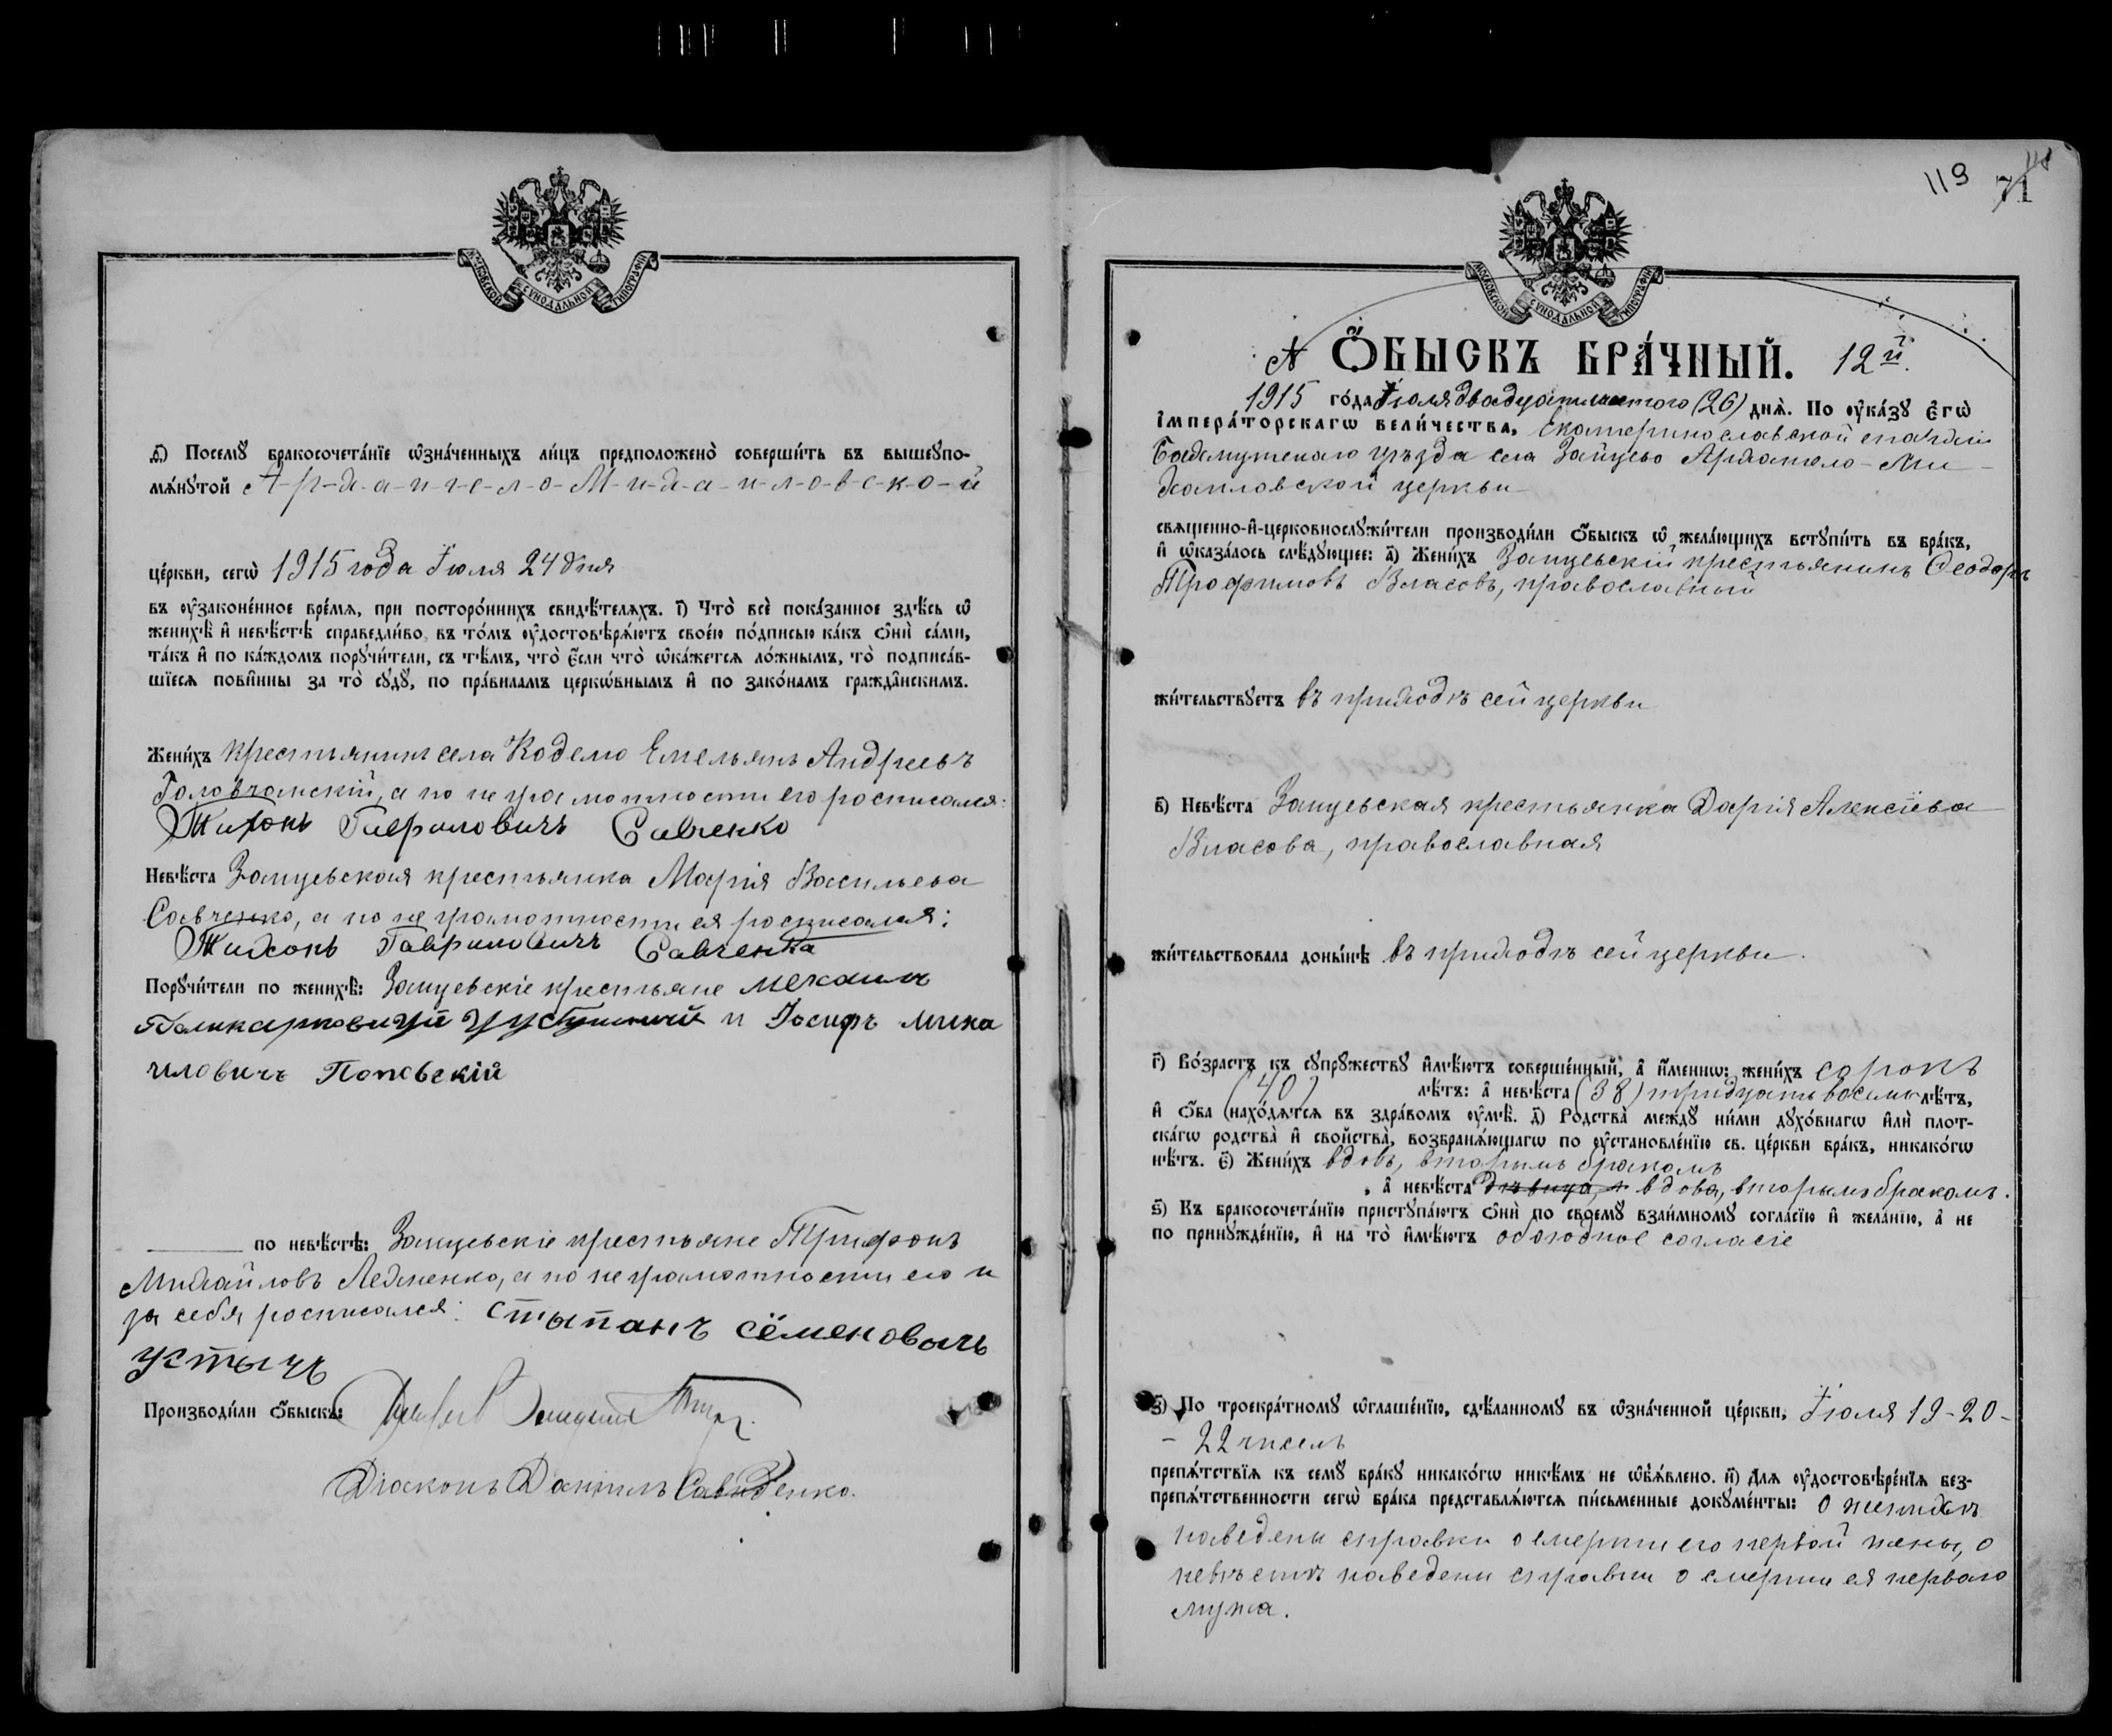 МОСКОВСКОЙ СѴНОДАЛЬНОЙ ТИПОГРАФІИ
ѳ҃) Посемꙋ̀ бракосочета́нїе ѡ҆зна́ченныхъ ли́цъ предположено̀ соверши́ть въ вышеꙋпо-
мѧ́нꙋтой А-р-х-а-н-г-е-л-о-М-и-х-а-и-л-о-в-с-к-о-й
це́ркви, сегѡ̀ 1915 года Іюля 24 дня
въ ᲂу҆законе́нное вре́мѧ, при посторо́ннихъ свидѣ́телѧхъ. і҃) Что̀ всѐ пока́занное здѣ́сь ѡ҆
женихѣ̀ и҆ невѣ́стѣ справедли́во, въ то́мъ ᲂу҆достовѣрѧ́ютъ свое́ю по́дписью ка́къ ѻ҆нѝ са́ми,
та́къ и҆ по ка́ждомъ порꙋчи́тели, съ тѣ́мъ, что̀ є҆́сли что̀ ѡ҆ка́жетсѧ ло́жнымъ, то̀ подписа́в-
шїесѧ пови́нны за то̀ сꙋдꙋ̀, по пра́виламъ церко́внымъ и҆ по зако́намъ гражда́нскимъ.
Жени́хъ крестьянинъ села Кодемо Емельянъ Андреевъ
Головчанскій, а по неграмотности его росписался:
Тихонъ Гавриловичъ Савченко
Невѣ́ста Зайцевская крестьянка Марія Васильева
Савченко, а по неграмотности ея росписался:
Тихонъ Гавриловичъ Савченко
Порꙋчи́тели по женихѣ̀: Зайцевскіе крестьяне Мехаилъ
и Іосифъ Миха
иловичъ Поповскій
по невѣ́стѣ: Зайцевскіе крестьяне Трифонъ
Михайловъ Ледненко, а по неграмотности его и
за себя росписался: Стыпанъ Сёменовычь
Устычъ
Производи́ли ѻ҆́быскъ:
Діаконъ Даніилъ Савченко.
119 71
МОСКОВСКОЙ СѴНОДАЛЬНОЙ ТИПОГРАФІИ
Ѻ҆́БЫСКЪ БРА́ЧНЫЙ. 12й.
1915 го́да Іюля двадцать шестого (26) днѧ̀. По ᲂу҆ка́зꙋ Є҆гѡ̀
І҆мпера́торскагѡ вели́чества, Екатеринославской епархіи
Бахмутскаго уѣзда села Зайцево Архангело-Ми-
хаиловской церкви
свѧще́нно-и҆-церковнослꙋжи́тели производи́ли ѻ҆́быскъ ѡ҆ жела́ющихъ встꙋпи́ть въ бра́къ,
и҆ ѡ҆каза́лось слѣ́дꙋющее: а҃) Жени́хъ Зайцевскій крестьянинъ Ѳеодоръ
Трофимовъ Власовъ, православный
жи́тельствꙋетъ въ приходѣ сей церкви
в҃) Невѣ́ста Зайцевская крестьянка Дарія Алексіева
Власова, православная
жи́тельствовала доны́нѣ въ приходѣ сей церкви.
г҃) Во́зрастъ къ сꙋпрꙋ́жествꙋ и҆мѣ́ютъ соверше́нный, а҆ и҆́менно: жени́хъ сорокъ
(40) лѣ́тъ: а҆ невѣ́ста (38) тридцать восемь лѣ́тъ,
и҆ ѻ҆́ба нахо́дѧтсѧ въ здра́вомъ ᲂу҆мѣ̀. д҃) Родства̀ междꙋ̀ ни́ми дꙋхо́внагѡ и҆лѝ плот-
ска́гѡ родства̀ и҆ сво́йства, возбранѧ́ющагѡ по ᲂу҆становле́нїю св. це́ркви бра́къ, никако́гѡ
нѣ́тъ. є҃) Жени́хъ вдовъ, вторымъ бракомъ
, а҆ невѣ́ста дѣвица, вдова, вторымъ бракомъ.
ѕ҃) Къ бракосочета́нїю пристꙋпа́ютъ ѻ҆нѝ по своемꙋ̀ взаи́мномꙋ согла́сїю и҆ жела́нїю, а҆ не
по принꙋжде́нїю, и҆ на то̀ и҆мѣ́ютъ обоюдное согласіе
з҃) По троекра́тномꙋ ѡ҆глаше́нїю, сдѣ́ланномꙋ въ ѡ҆зна́ченной це́ркви, Іюля 19-20-
- 22 чиселъ
препѧ́тствїѧ къ семꙋ̀ бра́кꙋ никако́гѡ никѣ́мъ не ѡ҆б̾ѧ́влено. и҃) Длѧ ᲂу҆достовѣре́нїѧ без-
препѧ́тственности сегѡ̀ бра́ка представлѧ́ютсѧ пи́сьменные докꙋме́нты: о женихѣ
наведены справки о смерти его первой жены, о
невѣстѣ наведены справки о смерти ея перваго
мужа.